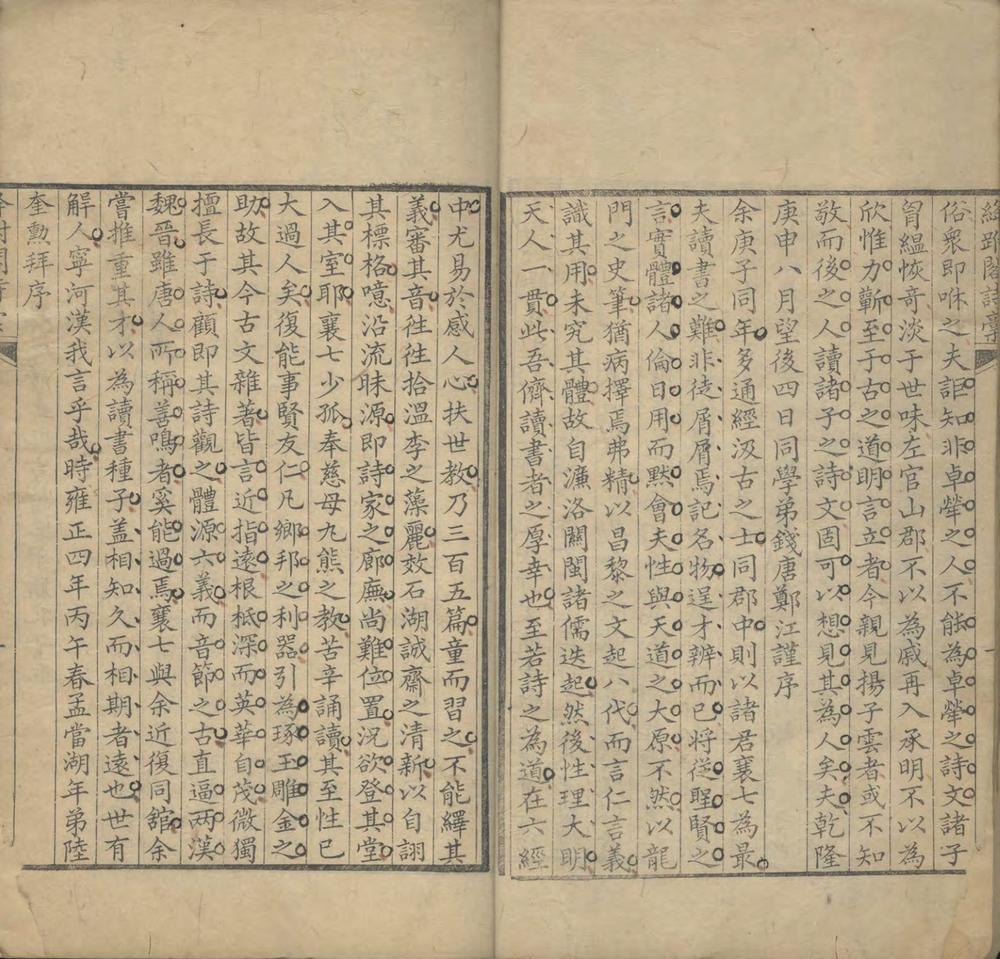 俗衆即咻之夫詎知非卓犖之人不能為卓犖之詩文諸子
胷緼恢奇淡于世味左官山郡不以為戚再入承明不以為
欣惟力蘄至于古之道明言立者今親見揚子雲者或不知
敬而後之人讀諸子之詩文固可以想見其為人矣夫乾隆
庚申八月望後四日同學弟錢唐鄭江謹序
余庚子同年多通經汲古之士同郡中則以諸君襄七為最
夫讀書之難非徒屑屑焉記名物逞才辨而已将從聖賢之
言實體諸人倫日用而默會夫性與天道之大原不然以龍
門之史筆猶病擇焉弗精以昌黎之文起八代而言仁言義
識其用未究其體故自濂洛關閩諸儒迭起然後性理大明
天人一貫此吾儕讀書者之厚幸也至若詩之為道在六經
中尤易於感人心扶世教乃三百五篇童而習之不能繹其
義審其音徃徃拾溫李之藻麗效石湖誠齋之清新以自詡
其標格噫沿流昧源即詩家之廊廡尚難位置况欲登其堂
入其室耶襄七少孤奉慈母九熊之教苦辛誦讀其至性已
大過人矣復能事賢友仁凡鄉邦之利器引為琢玉雕金之
助故其今古文雜著皆言近指遠根柢深而英華自茂微獨
擅長于詩顧即其詩觀之體源六義而音節之古直逼两漢
魏晉雖唐人所稱善鳴者奚能過焉襄七與余近復同舘余
嘗推重其才以為讀書種子盖相知久而相期者遠也世有
解人寧河漢我言乎哉時雍正四年丙午春孟當湖年弟陸
奎勲拜序